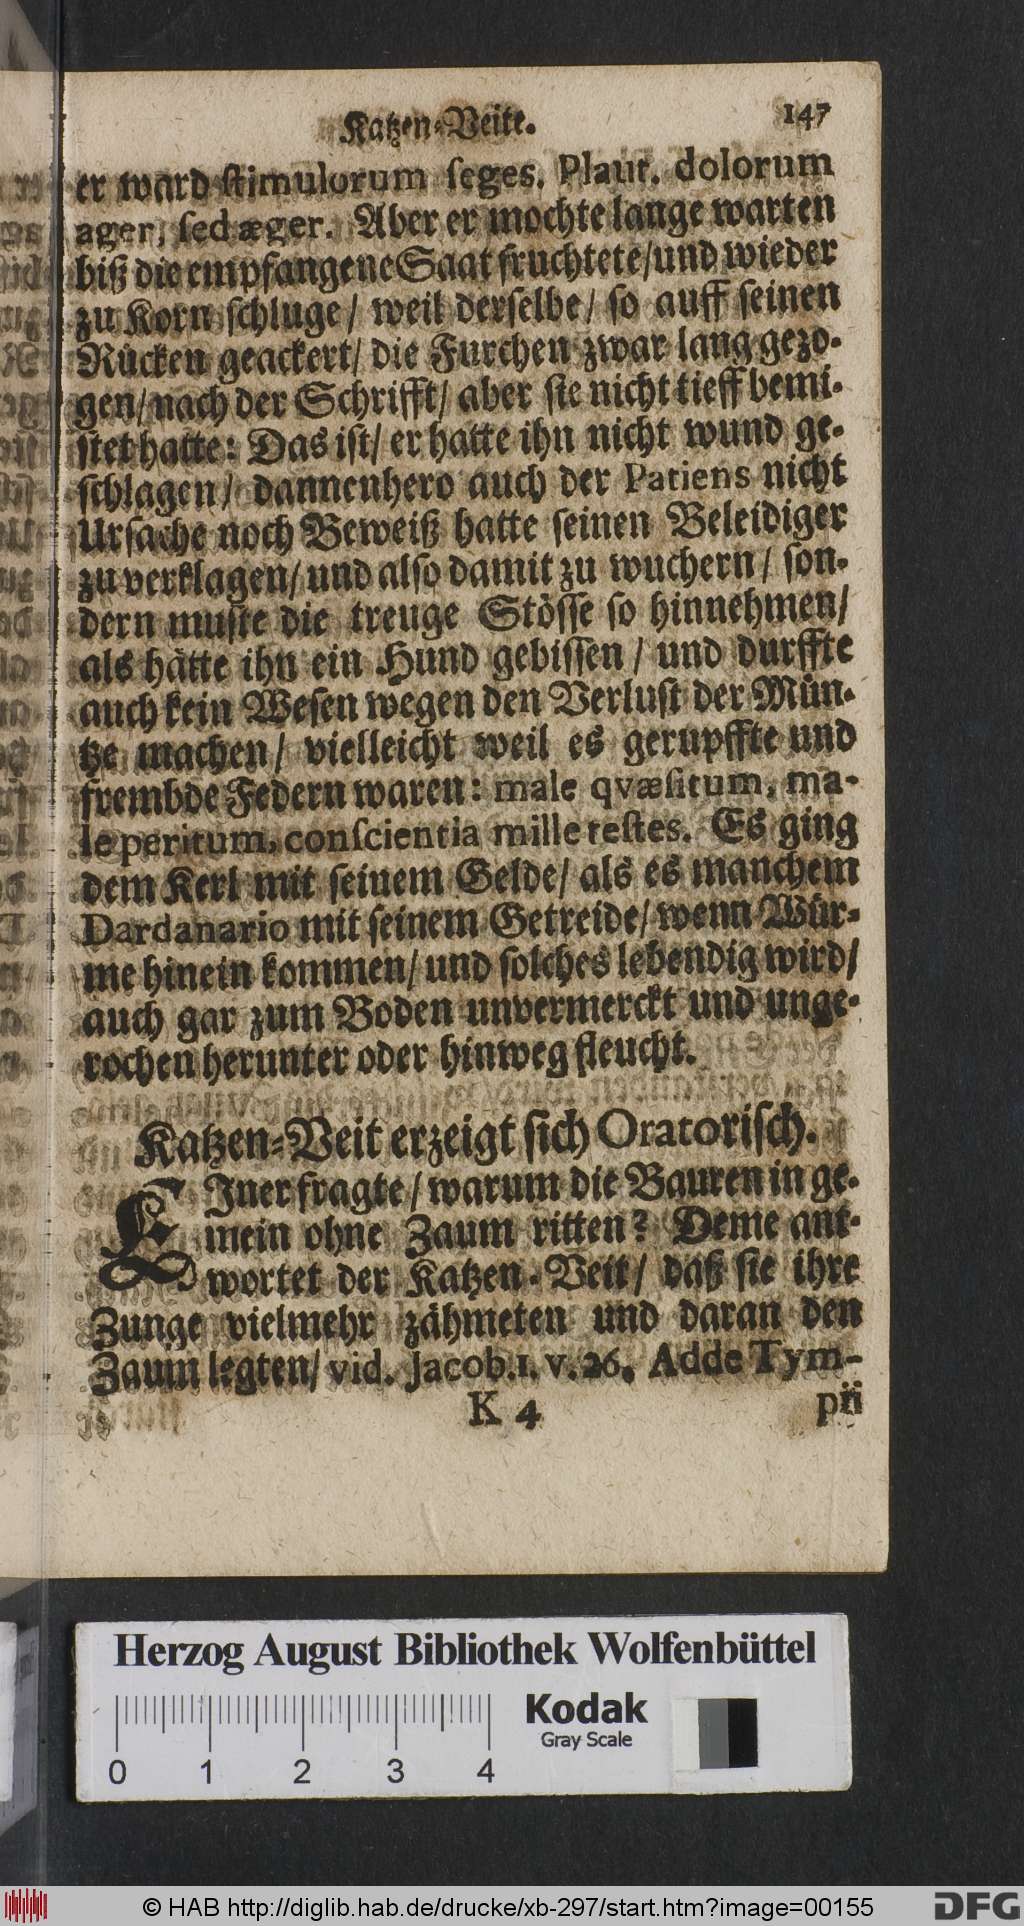 Katzen-Veite. 147
er ward stimulorum seges. Plaut. dolorum
ager, sed æger. Aber er mochte lange warten
biß die empfangene Saat fruchtete/und wieder
zu Korn schluge/ weil derselbe/ so auff seinen
Rücken geackert/ die Furchen zwar lang gezo-
gen/nach der Schrifft/ aber sie nicht tieff bemi-
stet hatte: Das ist/ er hatte ihn nicht wund ge-
schlagen/ dannenhero auch der Patiens nicht
Ursache noch Beweiß hatte seinen Beleidiger
zu verklagen/und also damit zu wuchern/ son-
dern muste die treuge Stösse so hinnehmen/
als hätte ihn ein Hund gebissen/ und durffte
auch kein Wesen wegen den Verlust der Mün-
tze machen/ vielleicht weil es gerupffte und
frembde Federn waren: male qvæsitum, ma-
le peritum, conscientia mille testes. Es ging
dem Kerl mit seinem Gelde/ als es manchem
Dardanario mit seinem Getreide/ wenn Wür-
me hinein kommen/und solches lebendig wird/
auch gar zum Boden unvermerckt und unge-
rochen herunter oder hinweg fleucht.
Katzen-Veit erzeigt sich Oratorisch.
EIner fragte/warum die Bauren in ge-
mein ohne Zaum ritten? Deme ant-
wortet der Katzen-Veit/ daß sie ihre
Zunge vielmehr zähmeten und daran den
Zaum legten/ vid. Jacob. 1. v. 26. Adde Tym-
K 4 pii
Herzog August Bibliothek Wolfenbüttel
Kodak
Gray Scale
0 1 2 3 4
© HAB http://diglib.hab.de/drucke/xb-297/start.htm?image=00155
DFG